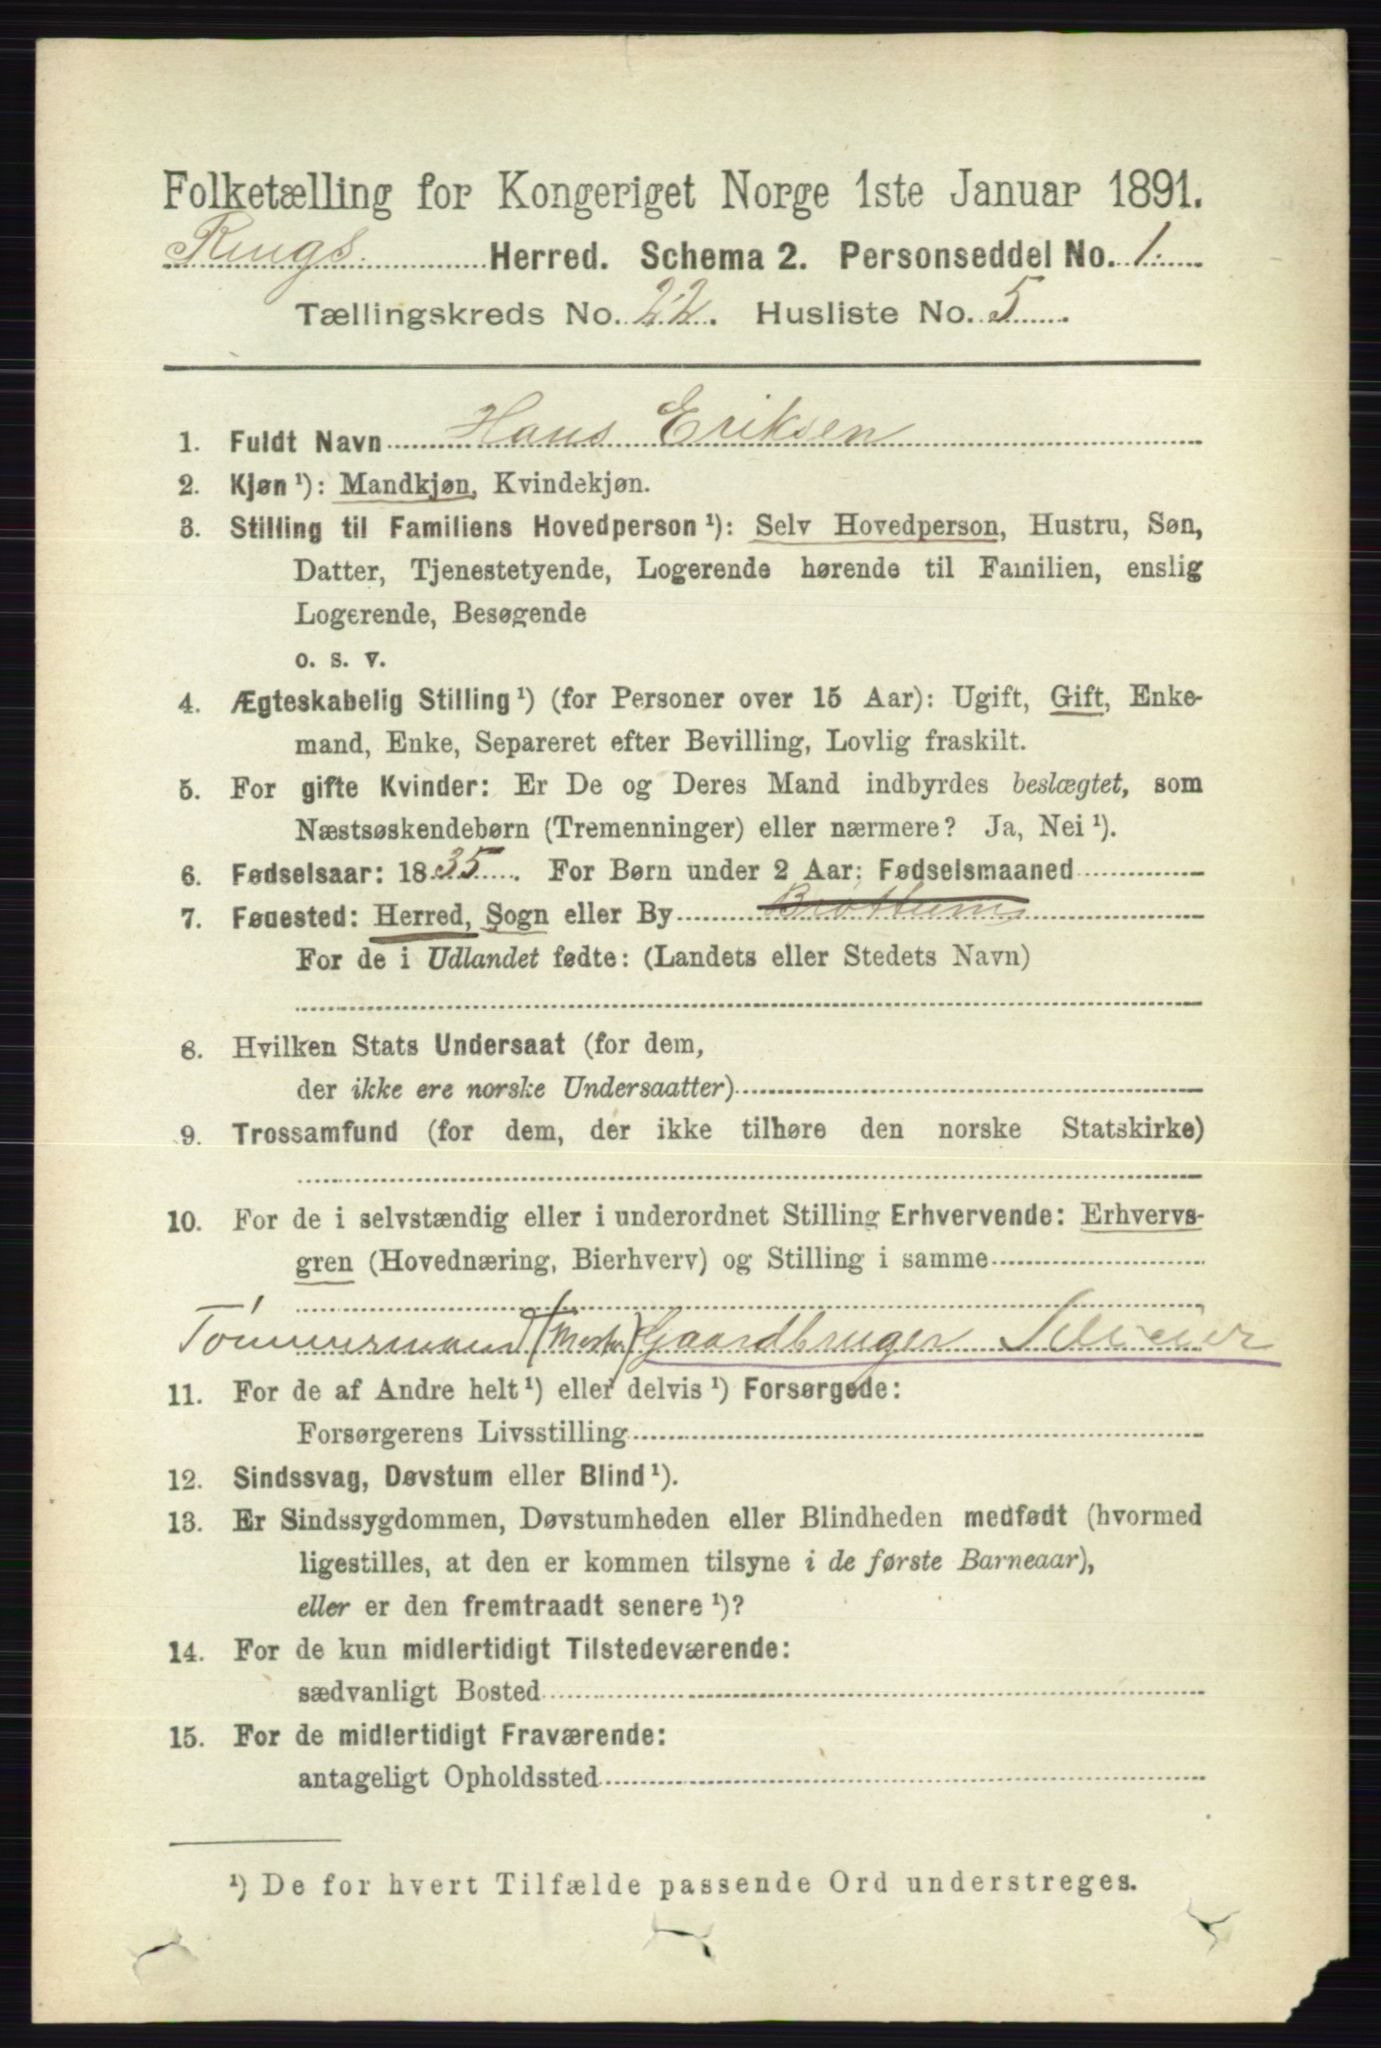 Folketælling for Kongeriget Norge 1ste Januar 1891.
Rings Herred. Schema 2. Personseddel No. 1.
Tællingskreds No. 22. Husliste No. 5.
1. Fuldt Navn Hans Eriksen
2. Kjøn ¹): Mandkjøn, Kvindekjøn.
3. Stilling til Familiens Hovedperson ¹): Selv Hovedperson, Hustru, Søn,
Datter, Tjenestetyende, Logerende hørende til Familien, enslig
Logerende, Besøgende
o. s. v.
4. Ægteskabelig Stilling ¹) (for Personer over 15 Aar): Ugift, Gift, Enke-
mand, Enke, Separeret efter Bevilling, Lovlig fraskilt.
5. For gifte Kvinder: Er De og Deres Mand indbyrdes beslægtet, som
Næstsøskendebørn (Tremenninger) eller nærmere? Ja, Nei ¹).
6. Fødselsaar: 1835. For Børn under 2 Aar: Fødselsmaaned
7. Fødested: Herred, Sogn eller By Brøttum
For de i Udlandet fødte: (Landets eller Stedets Navn)
8. Hvilken Stats Undersaat (for dem,
der ikke ere norske Undersaatter)
9. Trossamfund (for dem, der ikke tilhøre den norske Statskirke)
10. For de i selvstændig eller i underordnet Stilling Erhvervende: Erhvervs-
gren (Hovednæring, Bierhverv) og Stilling i samme
Tömmermand (Mester) Gaardbruger Seleier
11. For de af Andre helt ¹) eller delvis ¹) Forsørgede:
Forsørgerens Livsstilling
12. Sindssvag, Døvstum eller Blind ¹).
13. Er Sindssygdommen, Døvstumheden eller Blindheden medfødt (hvormed
ligestilles, at den er kommen tilsyne i de første Barneaar),
eller er den fremtraadt senere ¹)?
14. For de kun midlertidigt Tilstedeværende:
sædvanligt Bosted
15. For de midlertidigt Fraværende:
antageligt Opholdssted
¹) De for hvert Tilfælde passende Ord understreges.